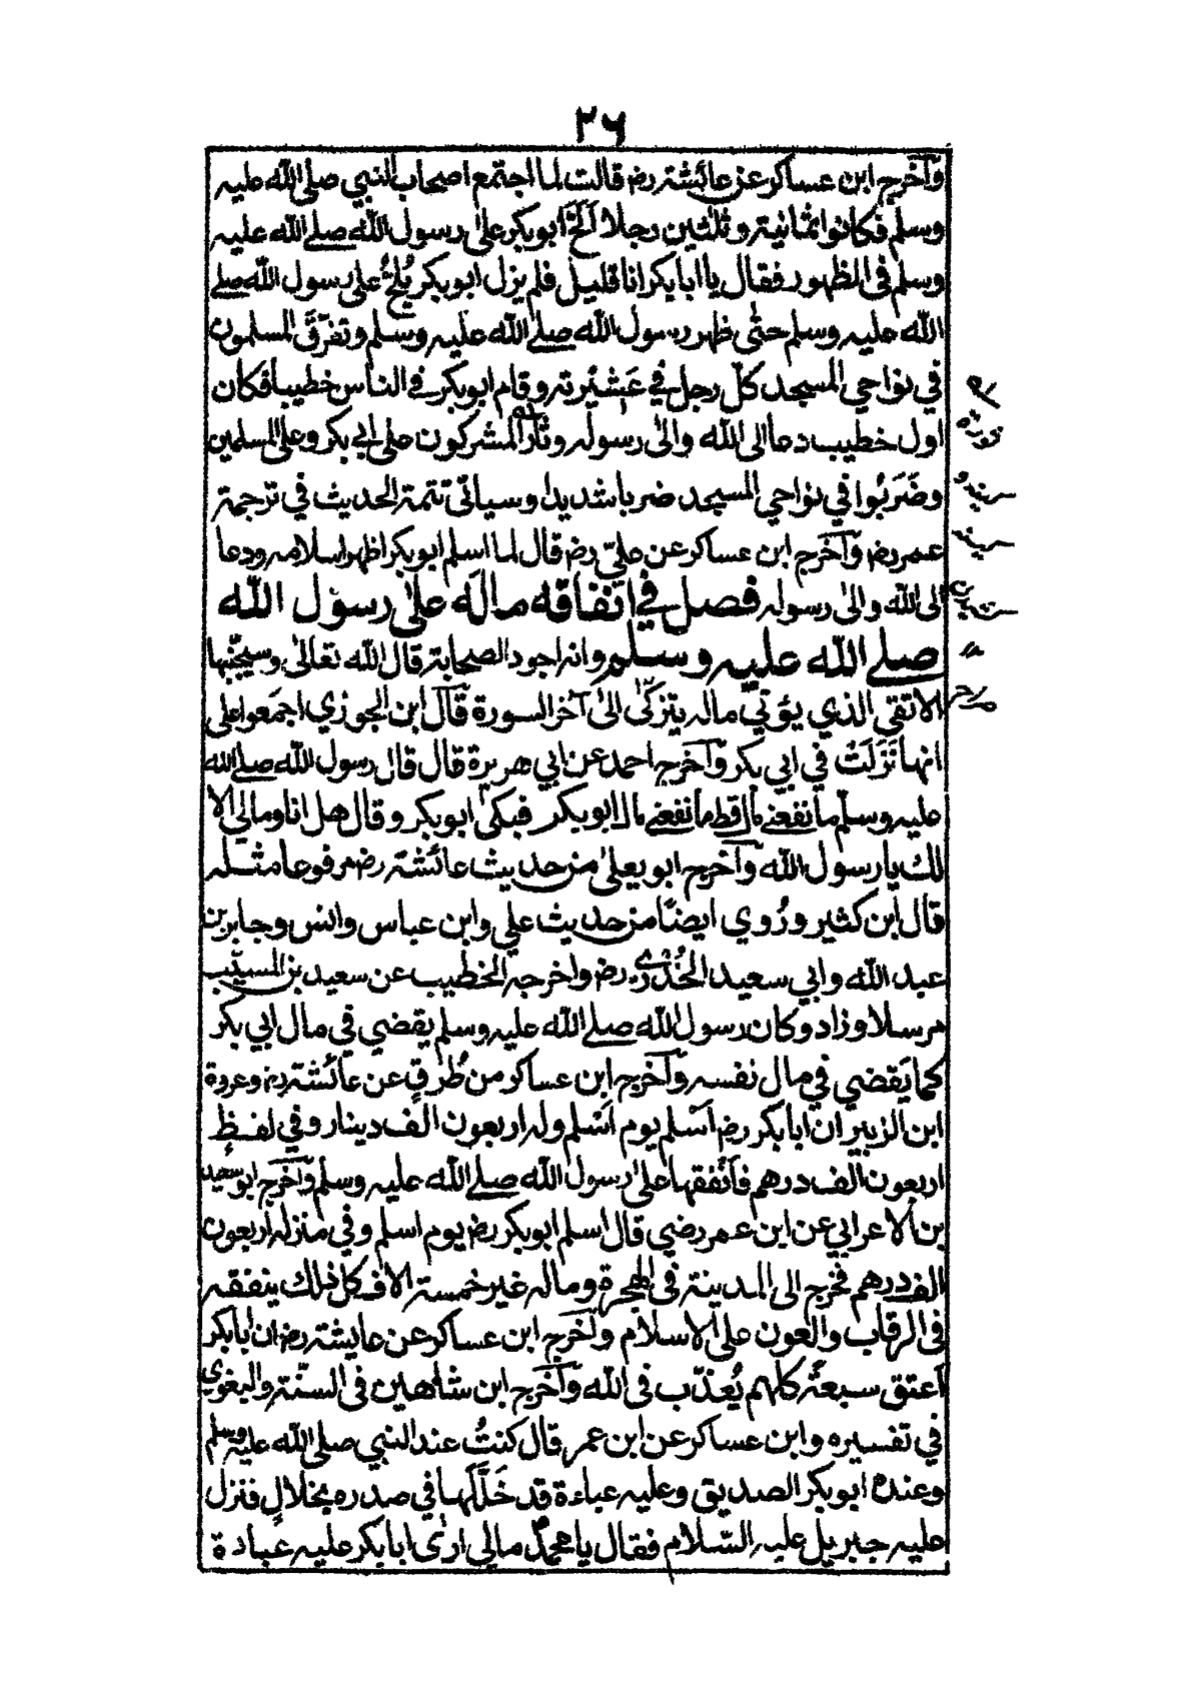 ٢٦
وآخرج ابن عساكر عن عائشة رض قالت لما اجتمع اصحاب النبي صلى الله عليه
وسلم فكانوا ثمانية وثلثين رجلا آلَحَّ ابوبكر على رسول الله صلے الله عليه
وسلم فى الظهور فقال يا ابا بكر انا قليل فلم يزل ابوبكر يُلِحُّ على رسول الله صلے
الله عليه وسلم حتٰى ظهر رسول الله صلے الله عليه وسلم وتفرَّقَ المسلمون
في نواحي المسجد كلّ رجل في عَشيْرته وقام ابوبكر فے الناس خطيبا فكان
اول خطيب دعا الى الله والىٰ رسوله وثار المشركون على ابي بكر وعلى المسلمين
وضَرَبُوا في نواحي المسجد ضربا شديدا وسيأتى تتمة الحديث في ترجمة
عمر رض وآخرج ابن عساكر عن علىّ رض قال لما اسلم ابوبكر اظهر اسلامه ودعا
الى الله والىٰ رسوله فصل في انفاقه ماله علىٰ رسول الله
صلے الله عليه وسلم وانه اجود الصحابة قال الله تعالىٰ وسيجنّبها
الاتقى الذي يؤتي ماله يتزكّٰى الىٰ آخر السورة قال ابن الجوزي اجمَعوا على
انها نَزَلَتْ في ابي بكر وآخرج احمد عن ابي هريرة قال قال رسول الله صلے الله
عليه وسلم ما نفعنے مال قط ما نفعنے مال ابوبكر فبكىٰ ابوبكر وقال هل انا ومالي الا
لك يا رسول الله وآخرج ابويعلىٰ من حديث عائشة رض مرفوعا مثله
قال ابن كثير ورُوي ايضًا من حديث علي وابن عباس وانس وجابر بن
عبد الله وابي سعيد الخُدْرے رض واخرجه الخطيب عن سعيد بن المسيّب
مرسلا وزاد وكان رسول الله صلے الله عليه وسلم يقضي في مال ابي بكر
كما يَقضي في مال نفسه وآخرج ابن عساكر من طُرُقٍ عن عائشة رض وعروة
ابن الزبير ان ابا بكر رض اَسْلم يوم اَسْلم وله اربعون الف دينار وفي لفظٍ
اربعون الف درهم فاَنْفقها على رسول الله صلے الله عليه وسلم وآخرج ابو سعيد
بن الاعرابي عن ابن عمر رضي قال اسلم ابوبكر رض يوم اسلم وفي منزله اربعون
الف درهم فخرج الى المدينة فى الهجرة وماله غير خمسة الاف كل ذلك ينفقه
فى الرقاب والعون على الاسلام وآخرج ابن عساكر عن عايشة رض ان ابا بكر
اعتق سبعة كلهم يُعذّب فى الله وآخرج ابن شاهين فى السنّة والبغوي
في تفسيره وابن عساكر عن ابن عمر قال كنتُ عند النبي صلى الله عليه وسلم
وعنده ابوبكر الصديق وعليه عباءة قد خَلَّلَها في صدره بخلالٍ فنزل
عليه جبريل عليه السّلام فقال يا محمد مالي ارىٰ ابا بكر عليه عبادة